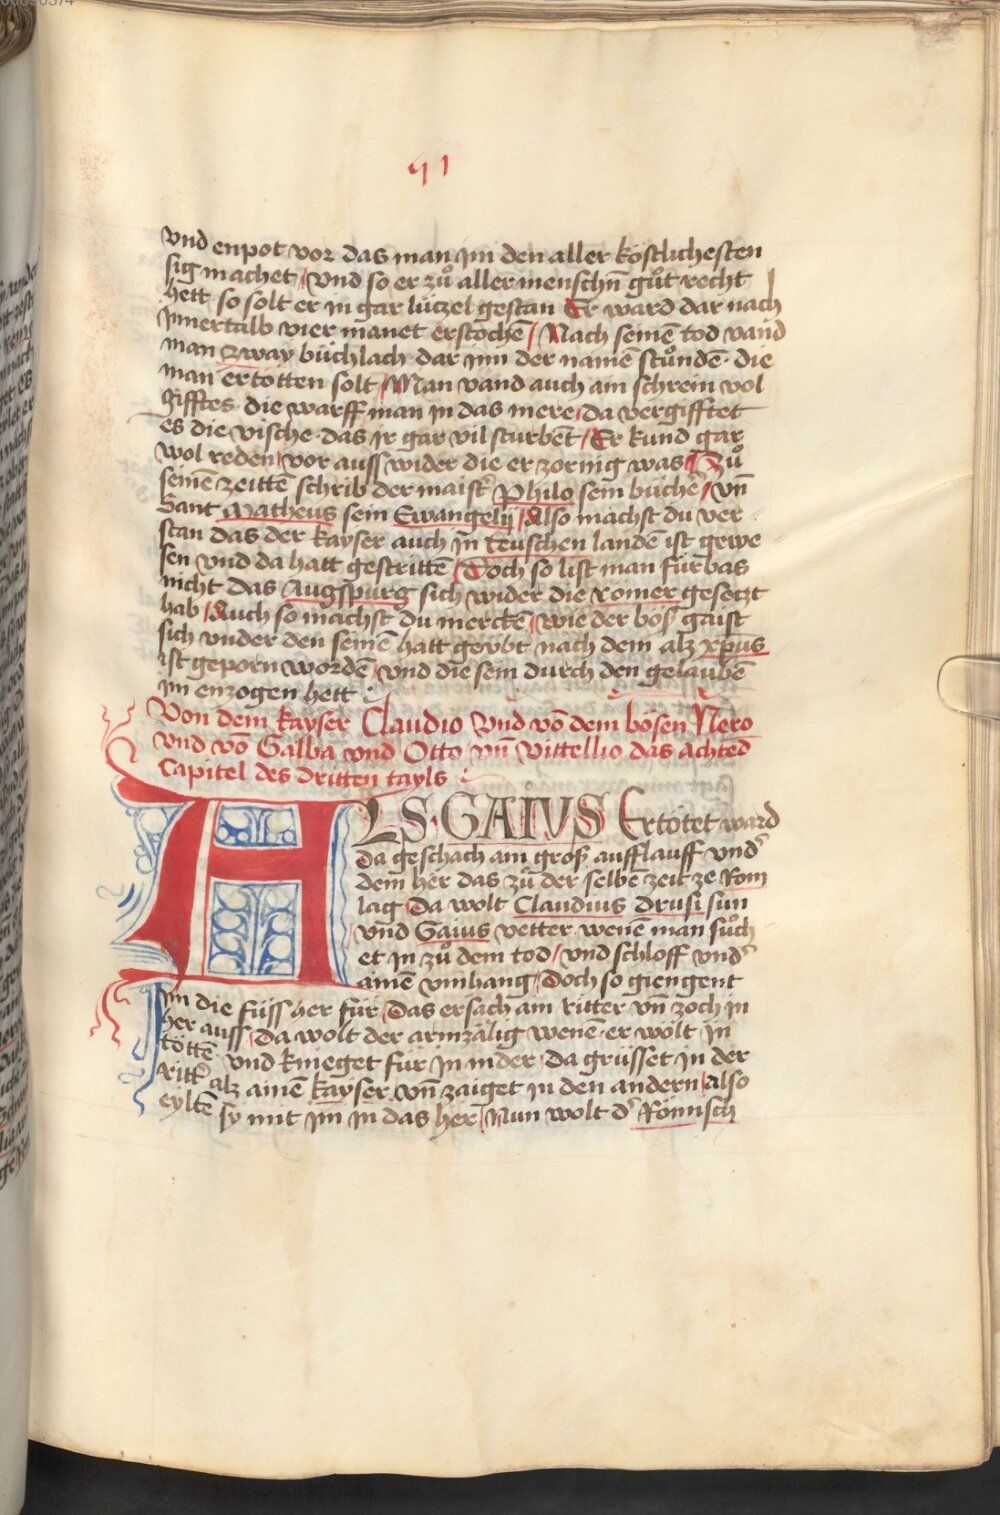 91
vnd enpot vor das man im den aller kostlichesten
sig machet / Vnd so er zů aller menschn̄ gůt recht
hett so solt er in gar lützel gestan Er ward dar nach
Innertalb vier manet erstochē / Nach seinē tod vand
man zway büchlach dar inn der namē stůndē die
man ertotten solt / Man vand auch ain schrein vol
gifftes die warff man in das mere / da vergifftet
es die vische das ir gar vil sturbēt / Er kund gar
wol reden / vor auss wider die er zornig was / Zů
seinē zeittē schrib der maistˀ Philo sein büchˀ / vn̄
Sant Matheus sein Ewangelij / Also machst du ver
stan das der kayser auch in teuschen landē ist gewe
sen vnd da hatt gestrittē / Doch so list man fürbas
nicht das Augspurg sich wider die romer gesetzt
hab / Auch so machst du merckē / wie der böß gaist
sich vnder den seinē hatt gev̈bt nach dem alz xp̄us
ist geporn wordē / vnd die sein durch den gelaubē
im enzogen hett
Von dem kayser Claudio vnd vō dem bösen Nero
vnd vō Galba vnd Otto vn̄ Vittellio das achted
Capitel des dritten tayls
ALS GAIVS Ertötet ward
Da geschach ain groß aufflauff vndˀ
dem her das zů der selbē zeit ze Rom
lag Da wolt Claudius drusi sun
vnd Gaius vetter wenē man sůch
et in zů dem tod / vnd schloff vndˀ
ainē vmhang / Doch so giengent
im die füss her für / Das ersach ain ritter vn̄ zoch in
her auss / Da wolt der armzälig wenē er wölt in
töttē vnd knieget für in nider / da grüsset in der
rittˀ alz ainē kayser vn̄ zaiget in den andern / also
eyltē sy mit im in das her / Nun wolt dˀ Römisch